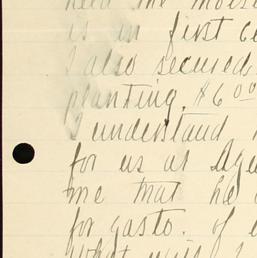 need the mois
is in first c
I also secured
planting. $6.00
I understand
for us at Ag
me that he
for gasto. of
what will I